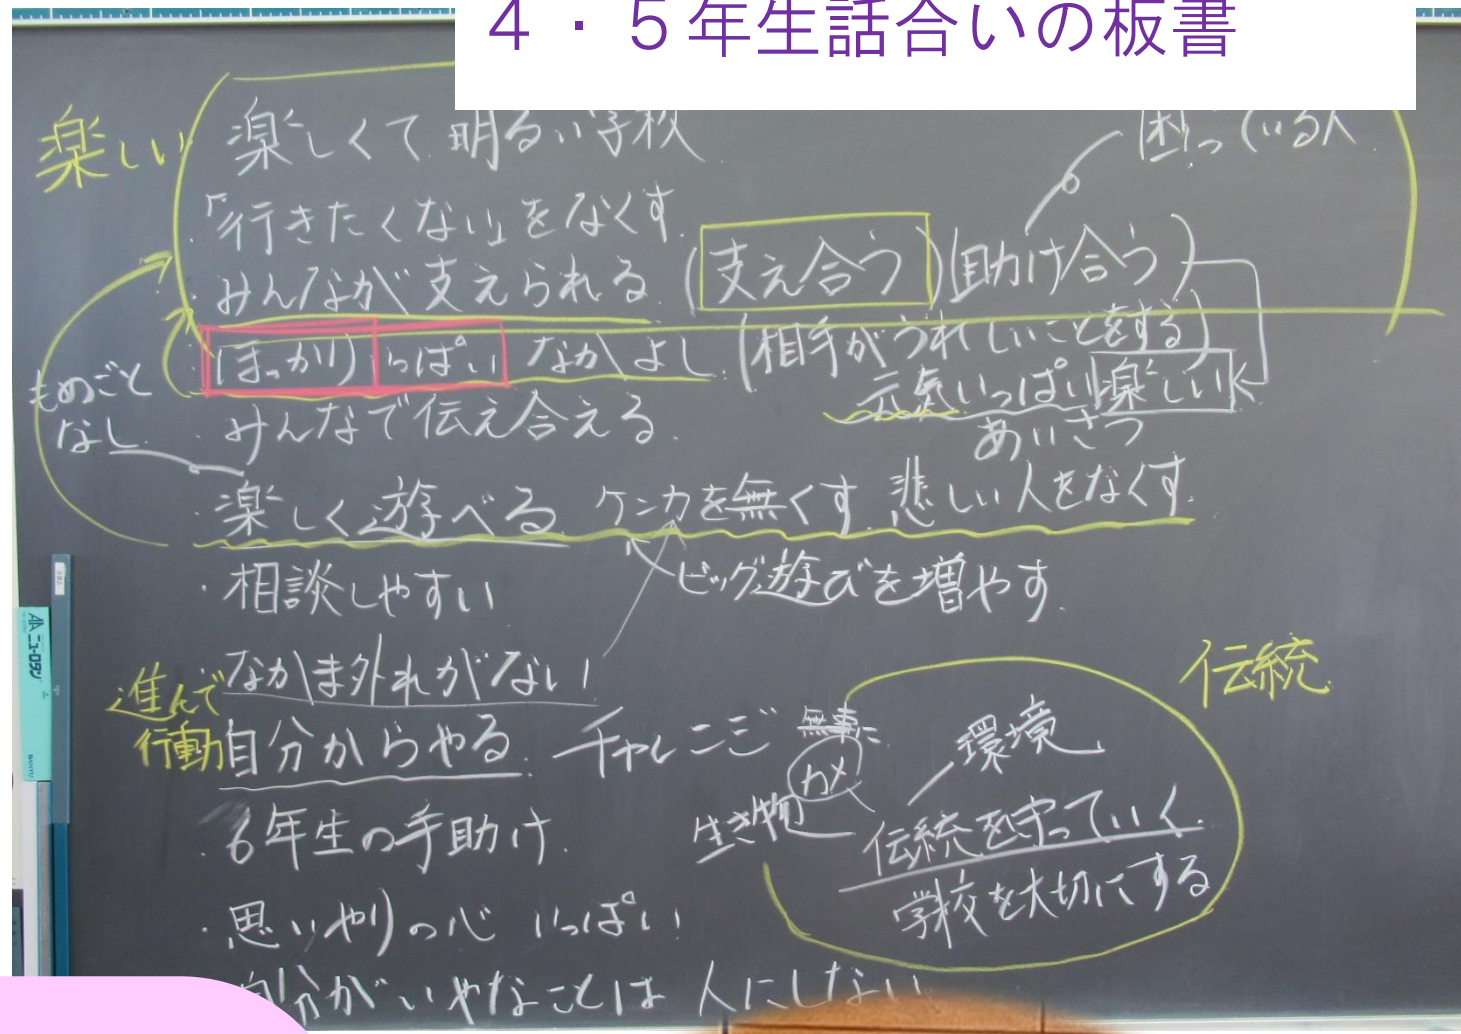 ４・５年生話合いの板書
楽しい
楽しくて明るい学校
困っている人
「行きたくない」をなくす
・みんなが支えられる (支え合う) (助け合う)
・ほっかりいっぱい なかよし (相手がうれしいことをする)
元気いっぱい楽しい
あいさつ
もめごと
なし
・みんなで伝え合える
・楽しく遊べる ケンカを無くす 悲しい人をなくす
ビッグ遊びを増やす
・相談しやすい
・なかま外れがない
伝統
進んで
行動
自分からやる チャレンジ
無事に
環境
カメ
生き物
伝統を守っていく
学校を大切にする
・6年生の手助け
・思いやりの心 いっぱい
自分がいやなことは人にしない
ニューロタン